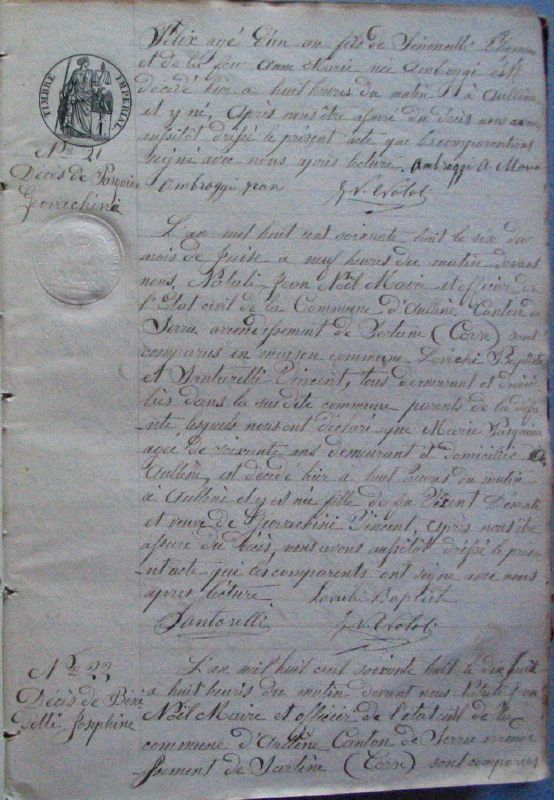 Felix agé d'un an fils de Simonelli
et de la feu Anne Marie née Ambroggi est
decedé hier a huit heures du matin à Aullène
et y né, Après nous être assuré du décès nous avons
aussitôt dréssé le présent acte que les comparents ont
signé avec nous après lecture. Ambroggi A Mone
Ambroggi jean
TIMBRE IMPERIAL
N° 21
Décès de Pasquina
Giovachini
L'an mil huit cent soixante huit le six du
mois de Juin a neuf heures du matin devant
nous, Natali Jean Noël Maire et officier de
l'Etat civil de la Commune d'Aullène Canton de
Serra arrondissement de Sartene (Corse) sont
comparus en maison commune Baptiste
et Santarelli Vincent, tous demurant et domici
liés dans la susdite commune parents de la défu
nte lesquels nous ont déclaré que Marie Pasquina
agée de soixante ans demeurant et domiciliée à
Aullène, est décédé hier a huit heures du matin
a Aullène et y est née fille de feu Vixent
et veuve de Giovachini Vincent, Après nous être
assuré du décès, nous avons aussitôt dréssé le prese
nt acte que les comparents ont signé avec nous
après lecture Baptist
Santarelli
N° 22
Décès de Béné
detti Josephine
L'an mil huit cent soixante huit le dix juin
a huit heures du matin devant nous Natali Jean
Noël Maire et officier de l'etat civil de la
commune d'Aullène Canton de Serra arron
dissement de Sartène (Corse) sont comparus